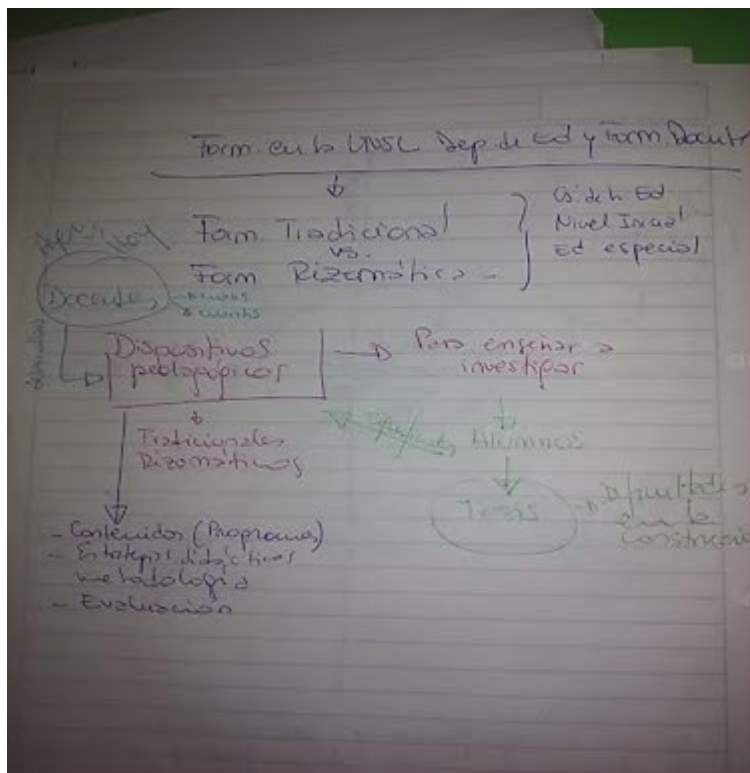 Form. en la UNSL Dep. de Ed y Form. Docente
Form. Tradicional
vs.
Form Rizomática
Cs. de la Ed
Nivel Inicial
Ed especial
Docentes
Dispositivos
pedagógicos
Para enseñar a
investigar
Tradicionales
Rizomáticos
Alumnos
Tesis
Dificultades
en la
Construcción
- Contenidos (Programa)
- Estrategias didácticas
metodología
- Evaluación